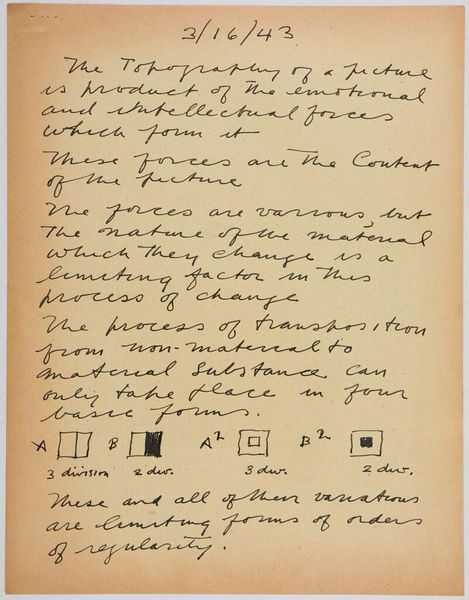 3/16/43
The Topography of a picture
is product of the emotional
and intellectual forces
which form it
These forces are the Content
of the picture
The forces are various, but
the nature of the material
which they change is a
limiting factor in this
process of change
The process of transposition
from non-material to
material substance can
only take place in four
basic forms.
A B A² B²
3 division 2 div. 3 div. 2 div.
These and all of their variations
are limiting forms of orders
of regularity.